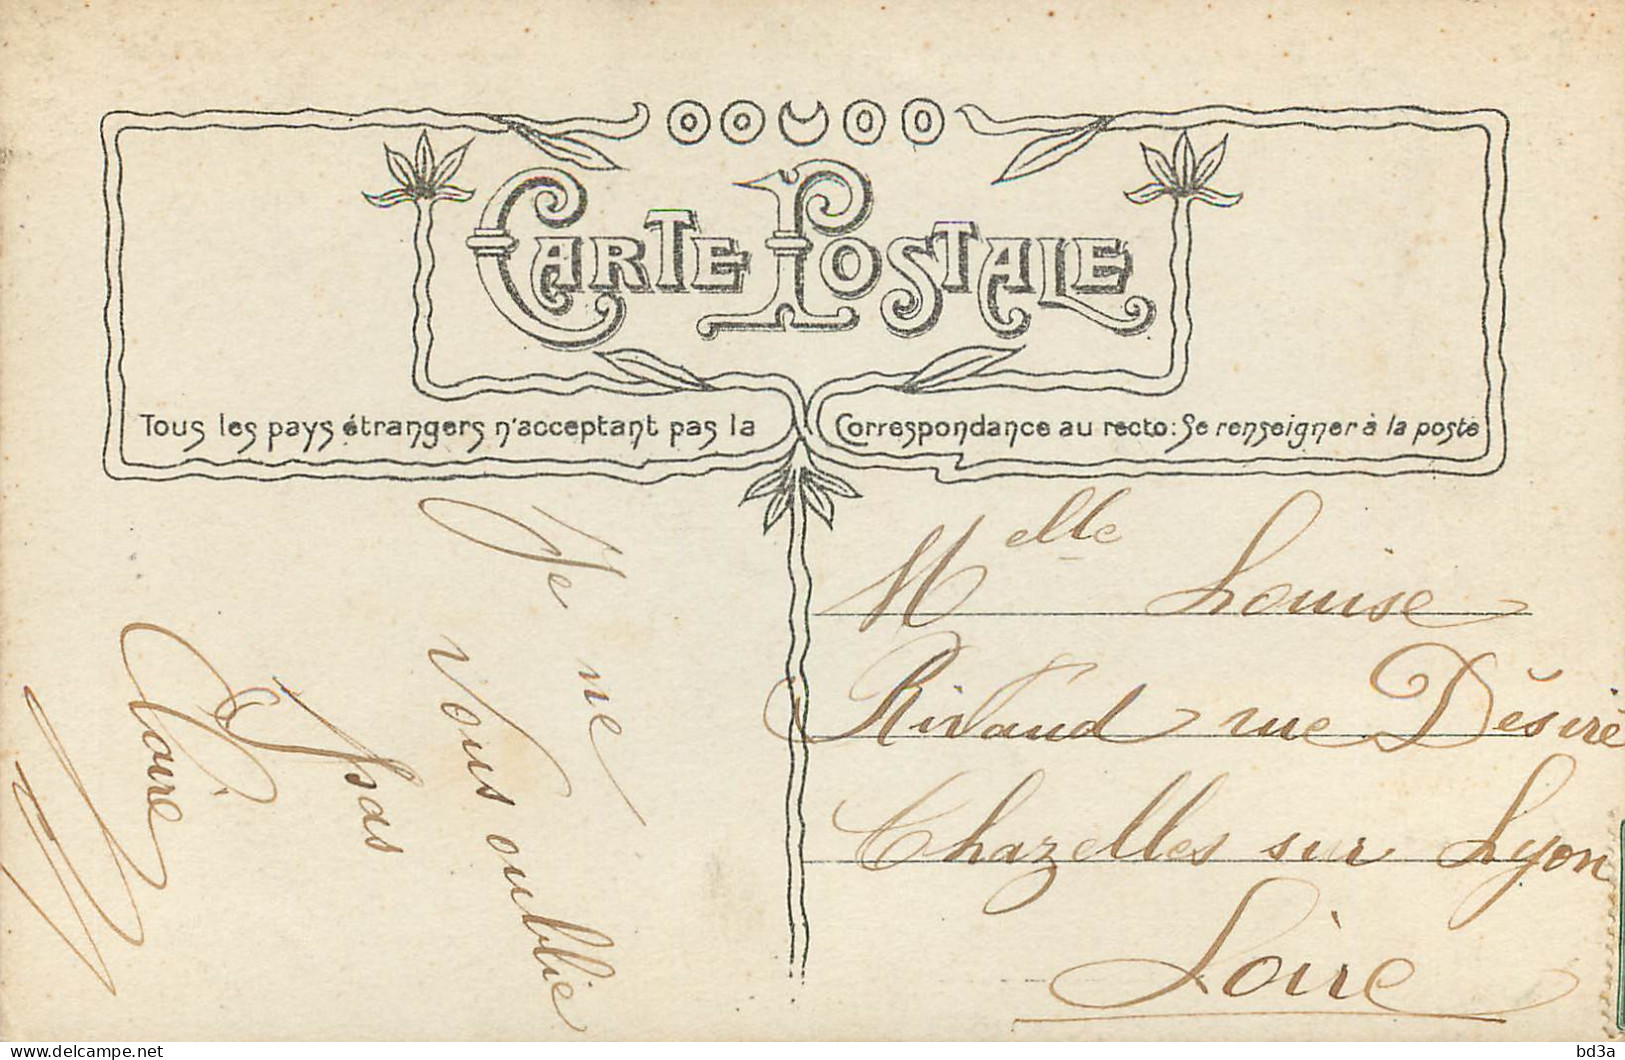 CARTE POSTALE
Tous les pays étrangers n'acceptant pas la Correspondance au recto: Se renseigner à la poste
Je ne
vous oublie
pas
Claire
Melle Louise
Rivaud rue Désiré
Chazelles sur Lyon
Loire
bd3a